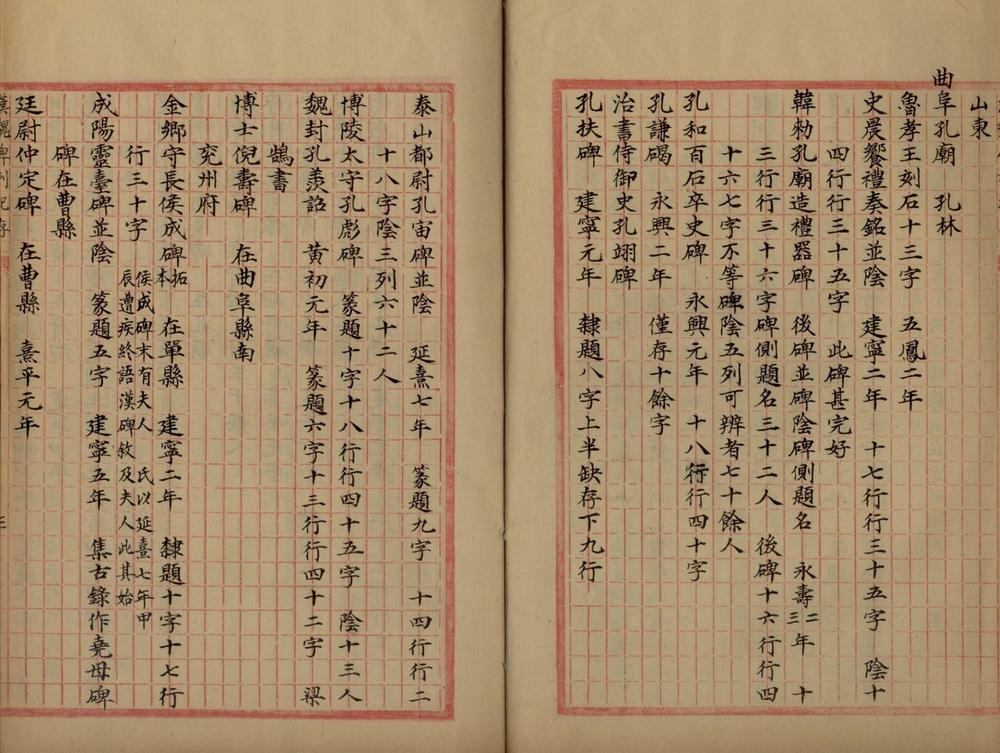 山東
曲阜孔廟 孔林
魯孝王刻石十三字 五鳳二年
史晨饗禮奏銘並陰 建寧二年 十七行行三十五字 陰十
四行行三十五字 此碑甚完好
韓勑孔廟造禮器碑 後碑並碑陰碑側題名 永壽二三年 十
三行行三十六字碑側題名三十二人 後碑十六行行四
十六七字不等碑陰五列可辨者七十餘人
孔和百石卒史碑 永興元年 十八行行四十字
孔謙碣 永興二年 僅存十餘字
治書侍御史孔翊碑
孔扶碑 建寧元年 隸題八字上半缺存下九行
泰山都尉孔宙碑並陰 延熹七年 篆題九字 十四行行二
十八字陰三列六十二人
博陵太守孔彪碑 篆題十字十八行行四十五字 陰十三人
魏封孔羨詔 黄初元年 篆題六字十三行行四十二字 梁
鵠書
博士倪壽碑 在曲阜縣南
兖州府
金鄉守長侯成碑 拓本 在單縣 建寧二年 隸題十字十七行
行三十字 侯成碑末有夫人 氏以延熹七年甲
辰遭疾終語漢碑敘及夫人此其始
成陽靈臺碑並陰 篆題五字 建寧五年 集古錄作堯母碑
碑在曹縣
廷尉仲定碑 在曹縣 熹平元年